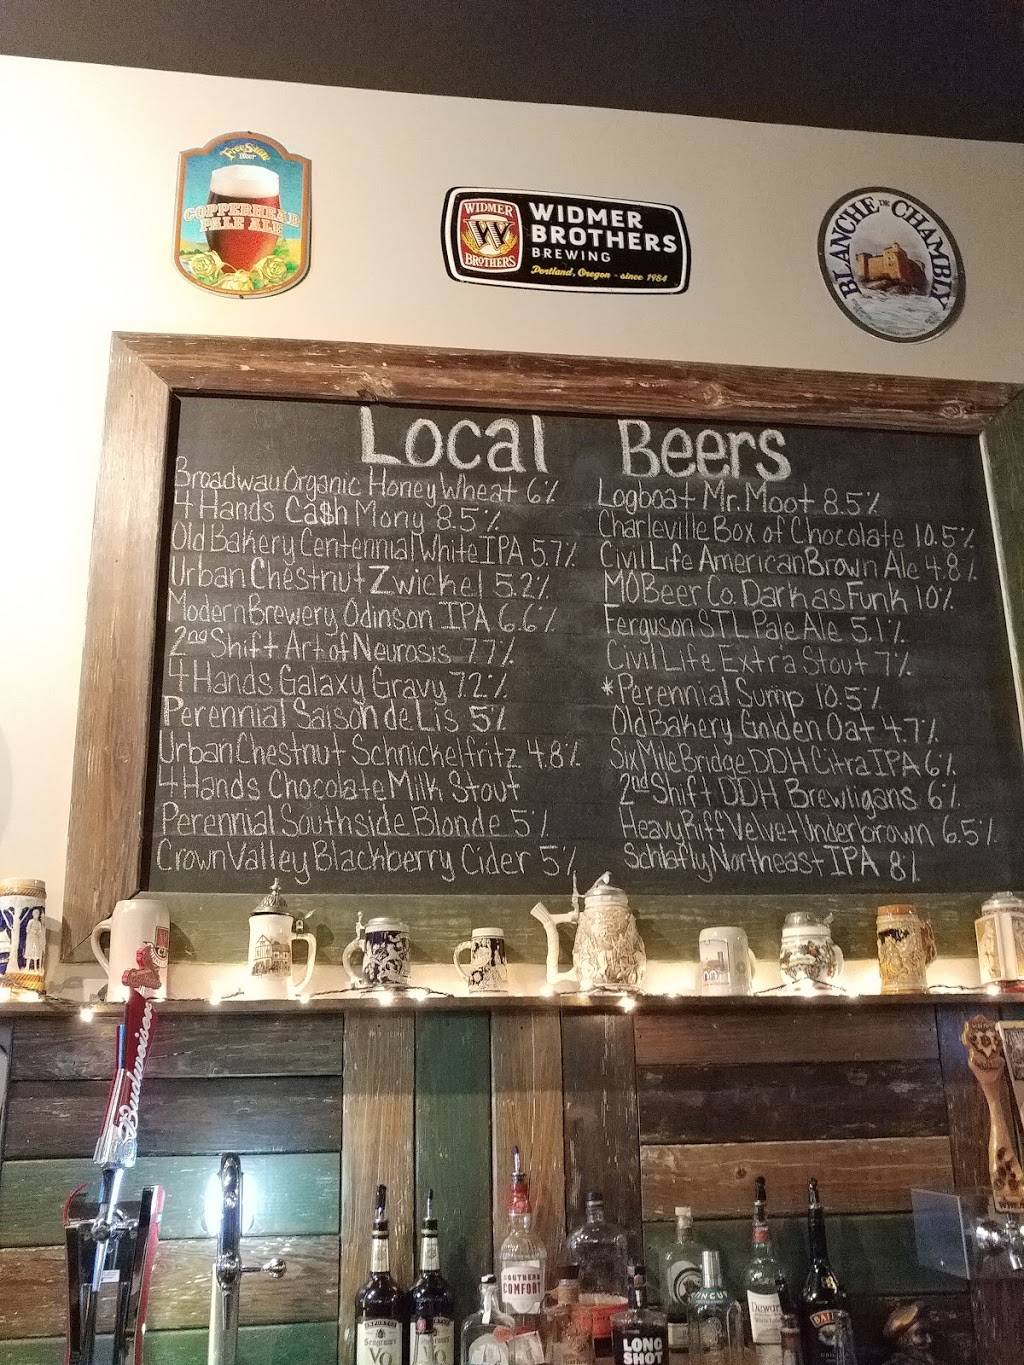 Free State
Beer
COPPERHEAD
PALE ALE
WIDMER
W
BROTHERS
WIDMER
BROTHERS
BREWING
Portland, Oregon - since 1984
BLANCHE DE CHAMBLY
Local Beers
Broadway Organic Honey Wheat 6%
4 Hands Ca$h Mony 8.5%
Old Bakery Centennial White IPA 5.7%
Urban Chestnut Zwickel 5.2%
Modern Brewery Odinson IPA 6.6%
2nd Shift Art of Neurosis 7.7%
4 Hands Galaxy Gravy 7.2%
Perennial Saison de Lis 5%
Urban Chestnut Schnickelfritz 4.8%
4 Hands Chocolate Milk Stout
Perennial Southside Blonde 5%
Crown Valley Blackberry Cider 5%
Logboat Mr. Moot 8.5%
Charleville Box of Chocolate 10.5%
Civil Life American Brown Ale 4.8%
MOBeer Co. Dark as Funk 10%
Ferguson STL Pale Ale 5.1%
Civil Life Extra Stout 7%
*Perennial Sump 10.5%
Old Bakery Golden Oat 4.7%
Six Mile Bridge DDH Citra IPA 6%
2nd Shift DDH Brewligans 6%
Heavy Riff Velvet Underbrown 6.5%
Schlafly Northeast IPA 8%
Budweiser
SOUTHERN
COMFORT
Seagram's
VO
LONG
SHOT
Dewar's